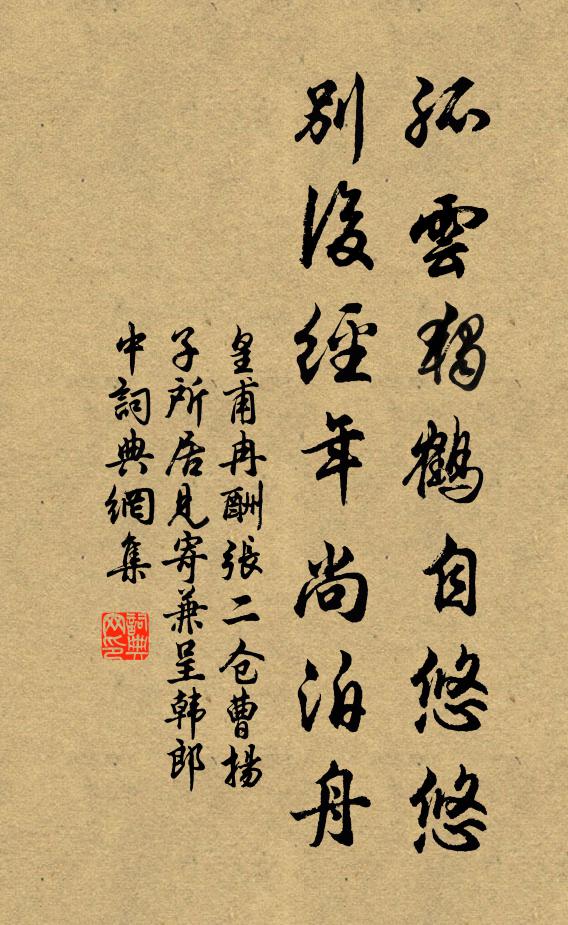 孤雲獨鶴自悠悠
別後經年尚泊舟
皇甫冉酬張二仓曹揚
子所居見寄兼呈韩郎
中詞典網集
詞典
网印